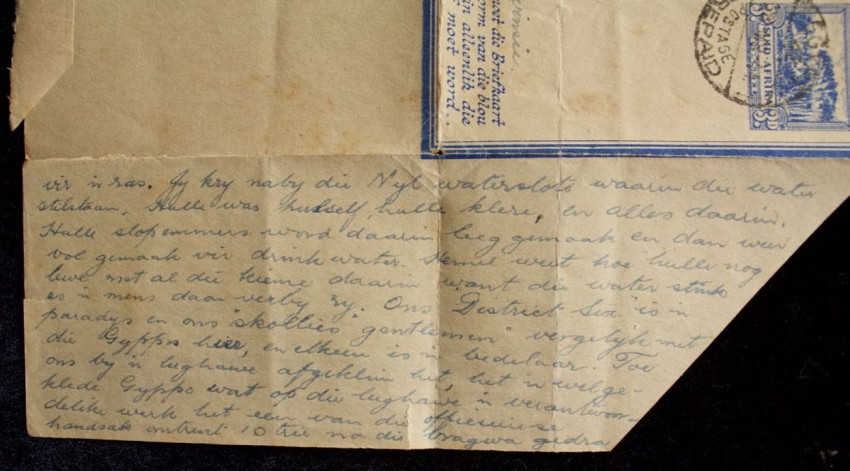 vir 'n ras. Jy kry naby die Nyl waterslote waarin die water
stilstaan, Hulle was hulself, hulle klere, en alles daarin.
Hulle slopemmers word daarin leeg gemaak en dan weer
vol gemaak vir drink water. Hemel weet hoe hulle nog
lewe met al die kieme daarin want die water stink
as 'n mens daar verby ry. Ons "District Six" is 'n
paradys en ons "skollies" "gentlemen" vergelyk met
die Gyppos hier, en elkeen is 'n bedelaar. Toe
ons by 'n lughawe afgeklim het, het 'n welge-
klede Gyppo wat op die lughawe 'n verantwoor-
delike werk het een van die offisiere se
handsak omtrent 10 tree na die vragwa gedra
moet die Briefkaart
vorm van die blou
in alleenlik die
moet word..
POSTAGE
PREPAID
SUID-AFRIKA
3D 3D